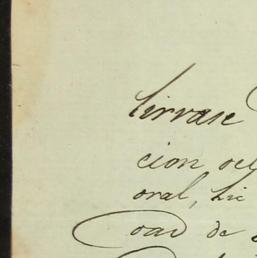 Sirvase
cion oc
oral, Lic
oad de